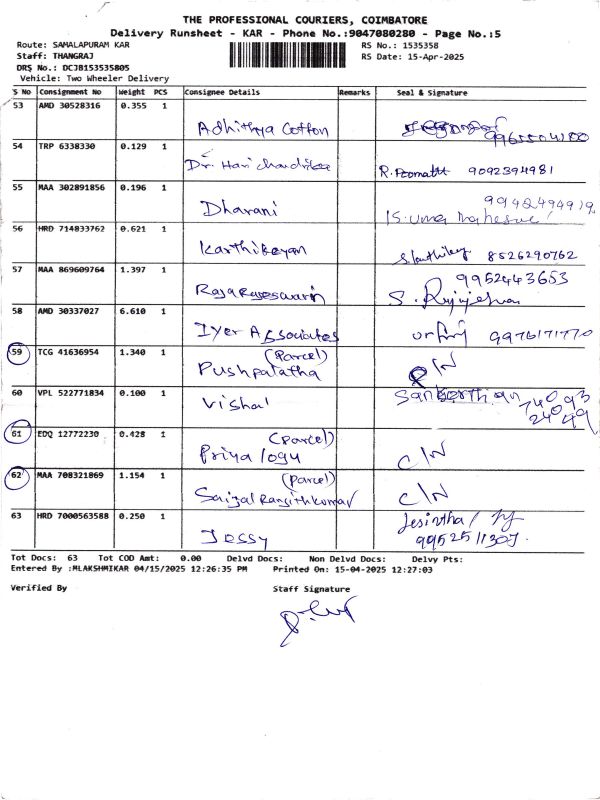 THE PROFESSIONAL COURIERS, COIMBATORE
Delivery Runsheet - KAR - Phone No.:9047080280 - Page No.:5
Route: SAMALAPURAM KAR
Staff: THANGRAJ
DRS No.: DCJB153535805
Vehicle: Two Wheeler Delivery
RS No.: 1535358
RS Date: 15-Apr-2025
S No Consignment No Weight PCS Consignee Details Remarks Seal & Signature
53 AMD 30528316 0.355 1
Adhithya Cotton
54 TRP 6338330 0.129 1
Dr. Hari chandrika R. Poomathi 9092394981
55 MAA 302891856 0.196 1
Dharani
56 HRD 714833762 0.621 1
Karthikeyan 8526290762
57 MAA 869609764 1.397 1 9952443653
Rajarajeswarin
58 AMD 30337027 6.610 1
Iyer Associates 9976171770
59 TCG 41636954 1.340 1 (Parcel)
Pushpalatha C/N
60 VPL 522771834 0.100 1
Vishal 74093
24049
61 EDQ 12772230 0.428 1 (Parcel)
Priya logu C/N
62 MAA 708321869 1.154 1 (Parcel)
Saijal Ranjithkumar C/N
63 HRD 7000563588 0.250 1 Jesintha /
Jessy 9952511307
Tot Docs: 63 Tot COD Amt: 0.00 Delvd Docs: Non Delvd Docs: Delvy Pts:
Entered By :MLAKSHMIKAR 04/15/2025 12:26:35 PM Printed On: 15-04-2025 12:27:03
Verified By Staff Signature